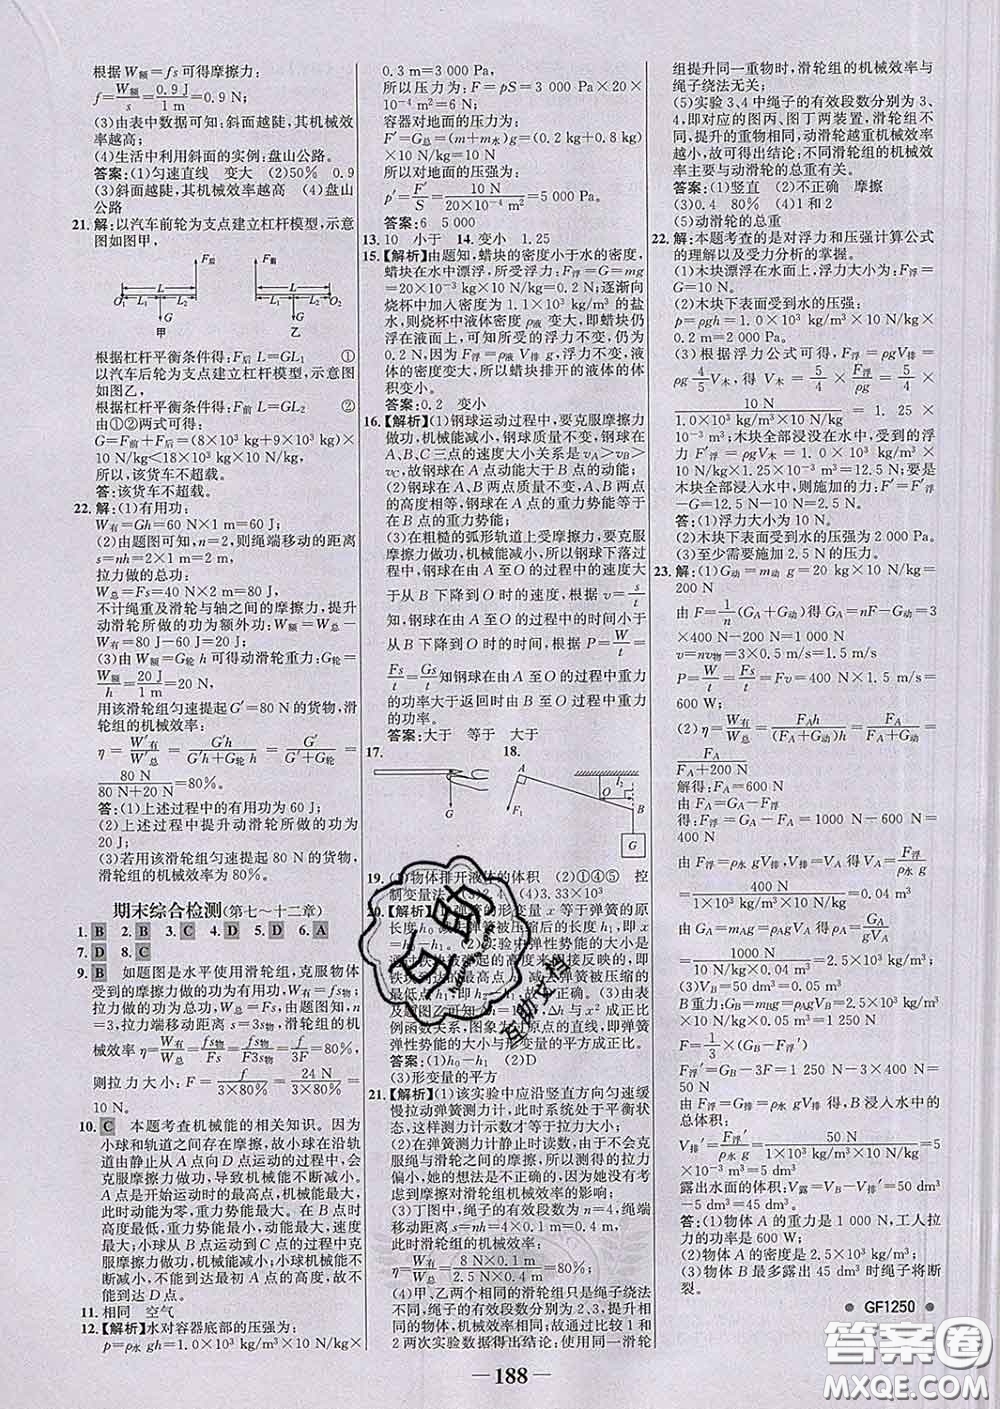 根据W额=fs可得摩擦力:
f=W额/s=0.9 J/1 m=0.9 N;
(3)由表中数据可知:斜面越陡,其机械效
率越高;
(4)生活中利用斜面的实例:盘山公路。
答案:(1)匀速直线 变大 (2)50% 0.9
(3)斜面越陡,其机械效率越高 (4)盘山
公路
21. 解:以汽车前轮为支点建立杠杆模型,示意
图如图甲,
F后 L O1 L1 L2 G 甲
F前 L L1 L2 O2 G 乙
根据杠杆平衡条件得:F后 L=GL1 ①
以汽车后轮为支点建立杠杆模型,示意图
如图乙,
根据杠杆平衡条件得:F前 L=GL2 ②
由①②两式可得:
G=F前+F后=(8×10³ kg+9×10³ kg)×
10 N/kg<18×10³ kg×10 N/kg
所以,该货车不超载。
答:该货车不超载。
22. 解:(1)有用功:
W有=Gh=60 N×1 m=60 J;
(2)由题图可知,n=2,则绳端移动的距离
s=nh=2×1 m=2 m;
拉力做的总功:
W总=Fs=40 N×2 m=80 J;
不计绳重及滑轮与轴之间的摩擦力,提升
动滑轮所做的功为额外功:W额=W总-
W有=80 J-60 J=20 J;
(3)由W额=G轮 h可得动滑轮重力:G轮=
W额/h=20 J/1 m=20 N,
用该滑轮组匀速提起G′=80 N的货物,滑
轮组的机械效率:
η=W′有/W′总=G′h/(G′h+G轮h)=G′/(G′+G轮)=
80 N/(80 N+20 N)=80%。
答:(1)上述过程中的有用功为60 J;
(2)上述过程中提升动滑轮所做的功为
20 J;
(3)若用该滑轮组匀速提起80 N的货物,
滑轮组的机械效率为80%。
期末综合检测(第七~十二章)
1. B 2. B 3. C 4. D 5. D 6. A
7. D 8. C
9. B 如题图是水平使用滑轮组,克服物体
受到的摩擦力做的功为有用功,拉力做的
功为总功,则W有=fs物,W总=Fs,由题图知,n
=3,拉力端移动距离s=3s物,滑轮组的机
械效率η=W有/W总=fs物/Fs=fs物/F3s物=f/3F=80%,
则拉力大小:F=f/(3×80%)=24 N/(3×80%)=
10 N。
10. C 本题考查机械能的相关知识。因为
小球和轨道之间存在摩擦,故小球在沿轨
道由静止从A点向D点运动的过程中,会
克服摩擦力做功,导致机械能不断减小。A
点是开始运动时的最高点,机械能最大,
此时动能为零,重力势能最大。在B点时
高度最低,重力势能最小,动能最大,速度
最大;小球从B点运动到C点的过程中克
服摩擦力做功,机械能减小;小球机械能不
断减小,不能达到最初A点的高度,故小球
不能到达D点。
11. 相同 空气
12. 【解析】水对容器底部的压强为:
p=ρ水 gh=1.0×10³ kg/m³×10 N/kg×
0.3 m=3 000 Pa,
所以压力为:F=pS=3 000 Pa×20×
10⁻⁴ m²=6 N;
容器对地面的压力为:
F′=G总=(m+m水)g=(0.2 kg+0.8 kg)
×10 N/kg=10 N
所以对地面的压强为:
p′=F′/S=10 N/(20×10⁻⁴ m²)=5 000 Pa。
答案:6 5 000
13. 10 小于 14. 变小 1.25
15. 【解析】由题知,蜡块的密度小于水的密度,
蜡块在水中漂浮,所受浮力:F浮=G=mg
=20×10⁻³ kg×10 N/kg=0.2 N;逐渐向
烧杯中加入密度为1.1×10³ kg/m³的盐
水,则烧杯中液体密度ρ液 变大,即蜡块仍
浮在液面上,可知所受的浮力不变,仍为
0.2 N,因为F浮=ρ液 V排 g,浮力不变,液
体的密度变大,所以蜡块排开的液体的体
积变小。
答案:0.2 变小
16. 【解析】(1)钢球运动过程中,要克服摩擦力
做功,机械能减小,钢球质量不变,钢球在
A、B、C三点的速度大小关系是vA>vB>
vC,故钢球在A点动能大于B点的动能;
(2)钢球在A、B两点质量不变,A、B两点
的高度相等,钢球在A点的重力势能等于
在B点的重力势能;
(3)在粗糙的弧形轨道上受摩擦力,要克服
摩擦力做功,机械能减小,所以钢球下落过
程中,钢球由A至O的过程中的速度大
于从B下降到O时的速度,根据v=s/t
知,钢球在由A至O的过程中的时间小于
从B下降到O时的时间,根据P=W/t=
Fs/t=Gs/t知钢球在由A至O的过程中重力
的功率大于返回时由B至O的过程中重力
的功率。
答案:大于 等于 大于
17. G 18. A F1 O l2 B G
19. (1)物体排开液体的体积 (2)①④⑤ 控
制变量法 (3)2.4 (4)3.33×10³
20. 【解析】(1)弹簧的形变量x等于弹簧的原
长度h0减去弹簧被压缩后的长度h1,即x
=h0-h1;(2)实验中弹性势能的大小是
答案:(1)h0-h1 (2)D
(3)形变量的平方
21. 【解析】(1)该实验中应沿竖直方向匀速缓
慢拉动弹簧测力计,此时系统处于平衡状态,
这样测力计示数才等于拉力大小;
(2)弹簧测力计静止时读数,由于没有克
服绳与滑轮之间的摩擦,所测的拉力
偏小,她的想法是不正确的,因为她没有考
虑到摩擦对滑轮组机械效率的影响;
(3)丁图中,绳子的有效段数为n=4,绳端
移动的距离s=nh=4×0.1 m=0.4 m,
此时滑轮组的机械效率:
η=W有/W总=8 N×0.1 m/(2.5 N×0.4 m)=80%;
(4)甲、乙两个滑轮组只是绳子绕法不同,
绳子的有效段数分别为2、3,提升物体重
力相同,机械效率相同,故可通过比较1和
2两次实验数据得出结论:使用同一滑轮
组提升同一重物时,滑轮组的机械效率与
绳子绕法无关;
(5)实验3、4中绳子的有效段数分别为3、
4,即对应的图丙、图丁两装置,滑轮组不
同,提升的重物相同,动滑轮越重机械效率
越小,故可得出结论:不同滑轮组的机械效
率主要与动滑轮的总重有关。
答案:(1)竖直 (2)不正确 摩擦
(3)0.4 80% (4)1和2
(5)动滑轮的总重
22. 解:本题考查的是对浮力和压强计算公式
的理解以及受力分析的掌握。
(1)木块漂浮在水面上,浮力大小为:F浮
=G=10 N
(2)木块下表面受到水的压强:
p=ρgh=1.0×10³ kg/m³×10 N/kg
×0.2 m=2 000 Pa。
(3)根据浮力公式可得,F浮=ρgV排=
ρg 4/5 V木,可得V木=5/4×F浮/ρg=5/4×
10 N/(1.0×10³ kg/m³×10 N/kg)=1.25×
10⁻³ m³;木块全部浸没在水中,受到的浮
力F浮′=ρgV木=1.0×10³ kg/m³×
10 N/kg×1.25×10⁻³ m³=12.5 N;要是
木块全部浸入水中,施加的力:F=F浮′
-G=12.5 N-10 N=2.5 N。
答:(1)浮力大小为10 N。
(2)木块下表面受到水的压强为2 000 Pa。
(3)至少需要施加2.5 N的压力。
23. 解:(1)G动=m动 g=20 kg×10 N/kg=
200 N
由F=1/n(GA+G动)得GA=nF-G动=3
×400 N-200 N=1 000 N
v=nv物=3×0.5 m/s=1.5 m/s
P=W/t=Fs/t=Fv=400 N×1.5 m/s=
600 W;
(2)η=W有/W总=FAh/(FA+G动)h=FA/(FA+G动)=
FA/(FA+200 N)
解得:FA=600 N
由FA=GA-F浮得F浮=GA-FA=
400 N
由F浮=ρ水 gVA排,得VA=VA排=F浮/ρ水g=
400 N/(1.0×10³ kg/m³×10 N/kg)=0.04 m³
由GA=mAg=ρAgVA得ρA=GA/gVA=
1 000 N/(10 N/kg×0.04 m³)=2.5×10³ kg/m³;
(3)VB=50 dm³=0.05 m³
B重力:GB=mBg=ρBgVB=2.5×10³ kg/m³
×10 N/kg×0.05 m³=1 250 N
F=1/3×(GB-F浮′)
F浮′=GB-3F=1 250 N-3×400 N=
50 N
由F浮′=ρ水 gV排′得,B浸入水中的
总体积:
V排′=F浮′/ρ水g=50 N/(1.0×10³ kg/m³×10 N/kg)=5
×10⁻³ m³=5 dm³
露出水面的体积:V露=VB-V排′=50 dm³
-5 dm³=45 dm³。
答:(1)物体A的重力是1 000 N,工人拉
力的功率为600 W;
(2)物体A的密度是2.5×10³ kg/m³;
(3)物体B最多露出45 dm³时绳子将断
裂。
GF1250
188
互助
互助文档
答案圈
MXQE.COM